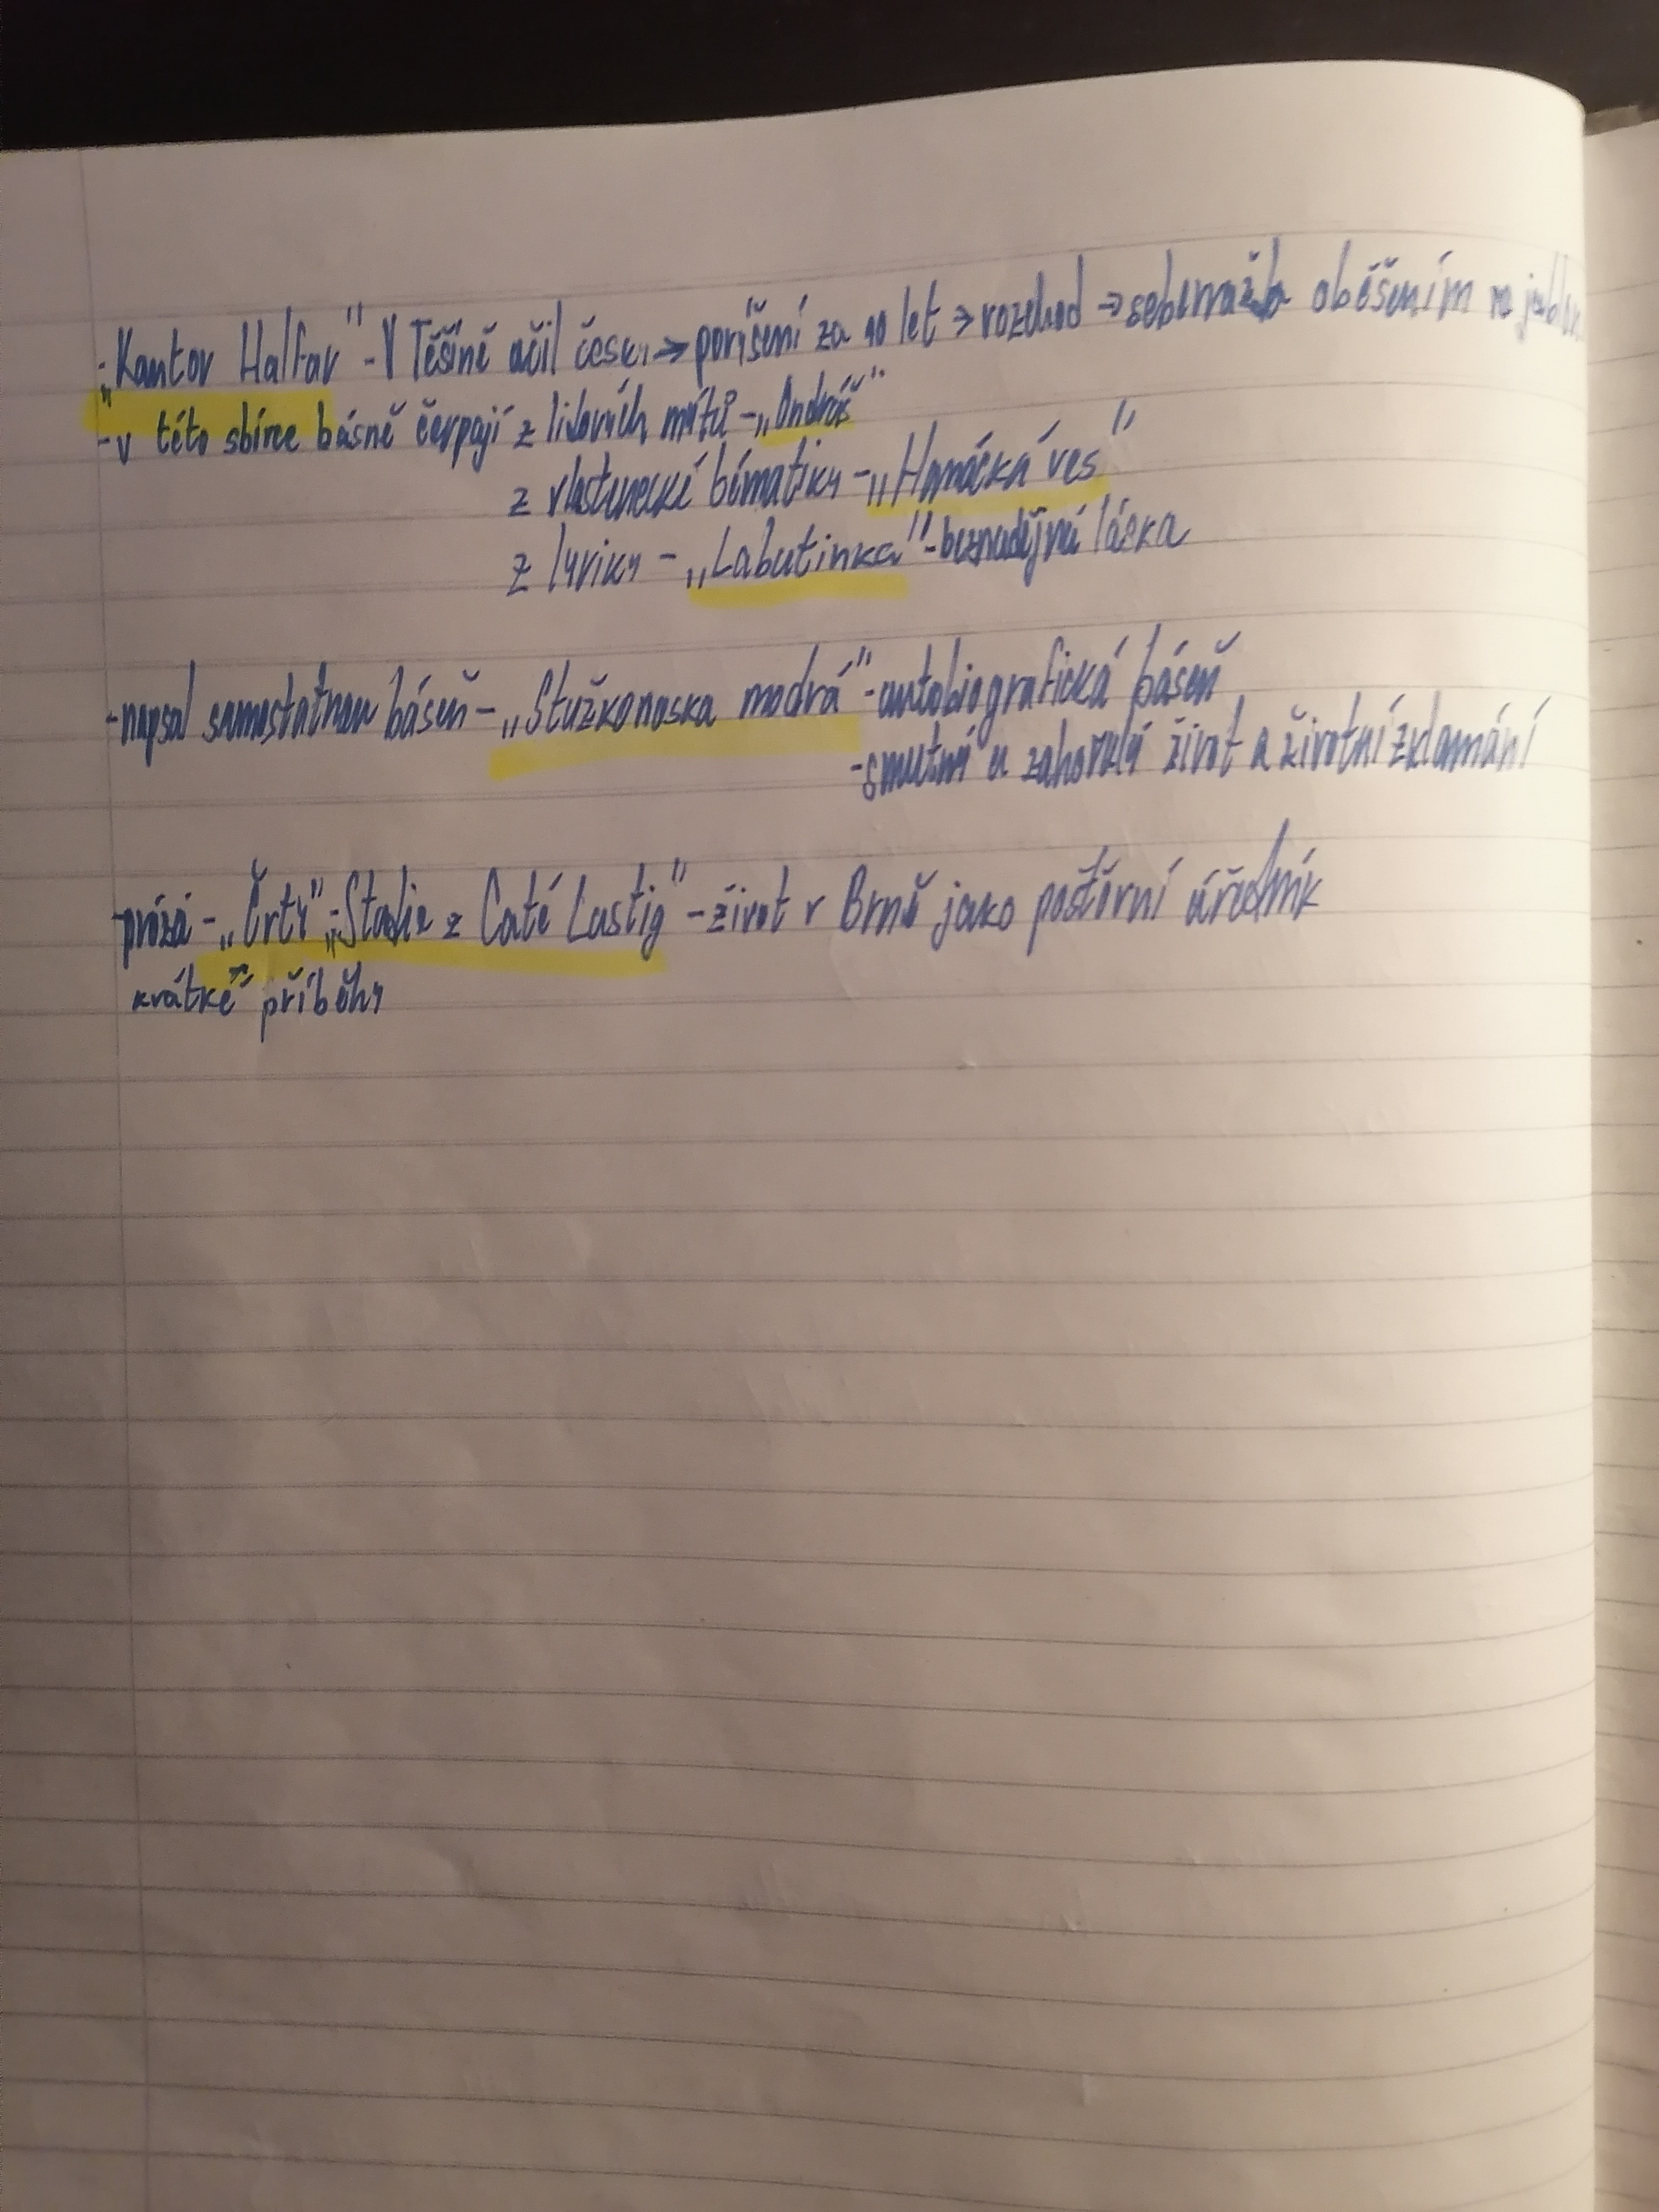 „Kantor Halfar" - V Těšíně učil česky → povýšení za 10 let → rozchod → sebevražda oběšením na
- v této sbírce básně čerpají z lidových mýtů - „Ondráš"
z vlastenecké tématiky - „Hanácká ves"
z lyriky - „Labutinka" - beznadějná láska
- napsal samostatnou báseň - „Stužkonoska modrá" - autobiografická báseň
- smutný a zahořklý život a životní zklamání
- próza - „Črty", „Studie z Café Lustig" - život v Brně jako poštovní úředník
krátké příběhy